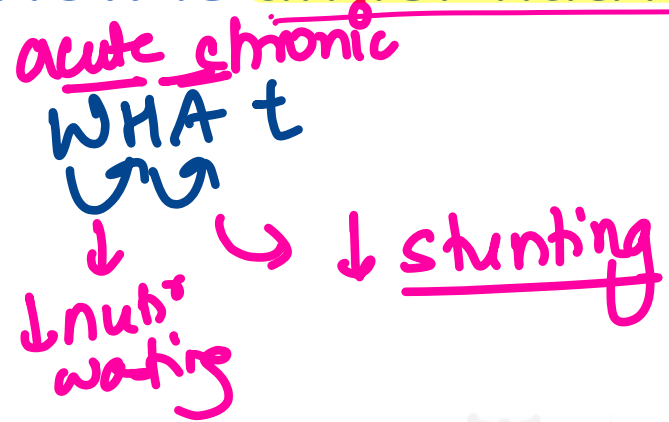 acute chronic
WHAt
↓ stunting
↓ nutrⁿ
wasting